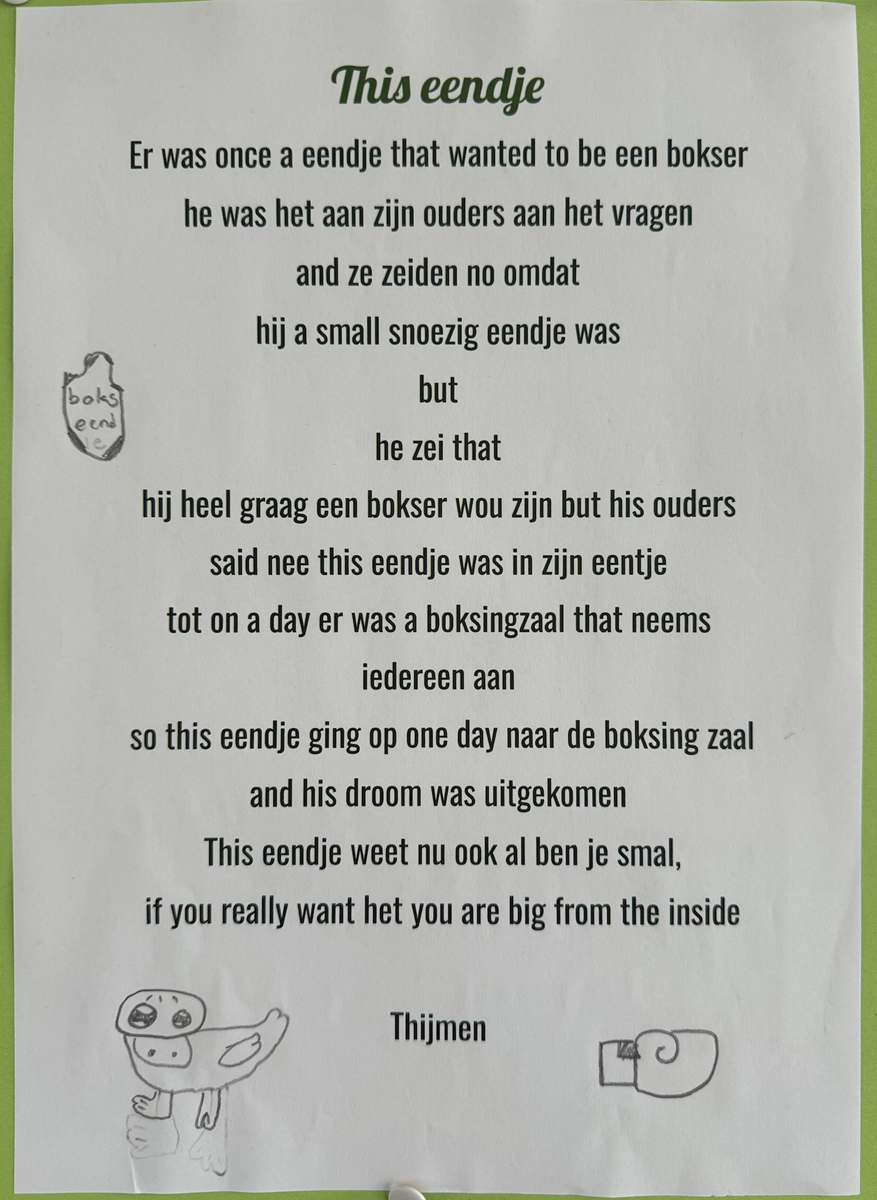 This eendje
Er was once a eendje that wanted to be een bokser
he was het aan zijn ouders aan het vragen
and ze zeiden no omdat
hij a small snoezig eendje was
but
he zei that
hij heel graag een bokser wou zijn but his ouders
said nee this eendje was in zijn eentje
tot on a day er was a boksingzaal that neems
iedereen aan
so this eendje ging op one day naar de boksing zaal
and his droom was uitgekomen
This eendje weet nu ook al ben je smal,
if you really want het you are big from the inside
Thijmen
boks
eend
je